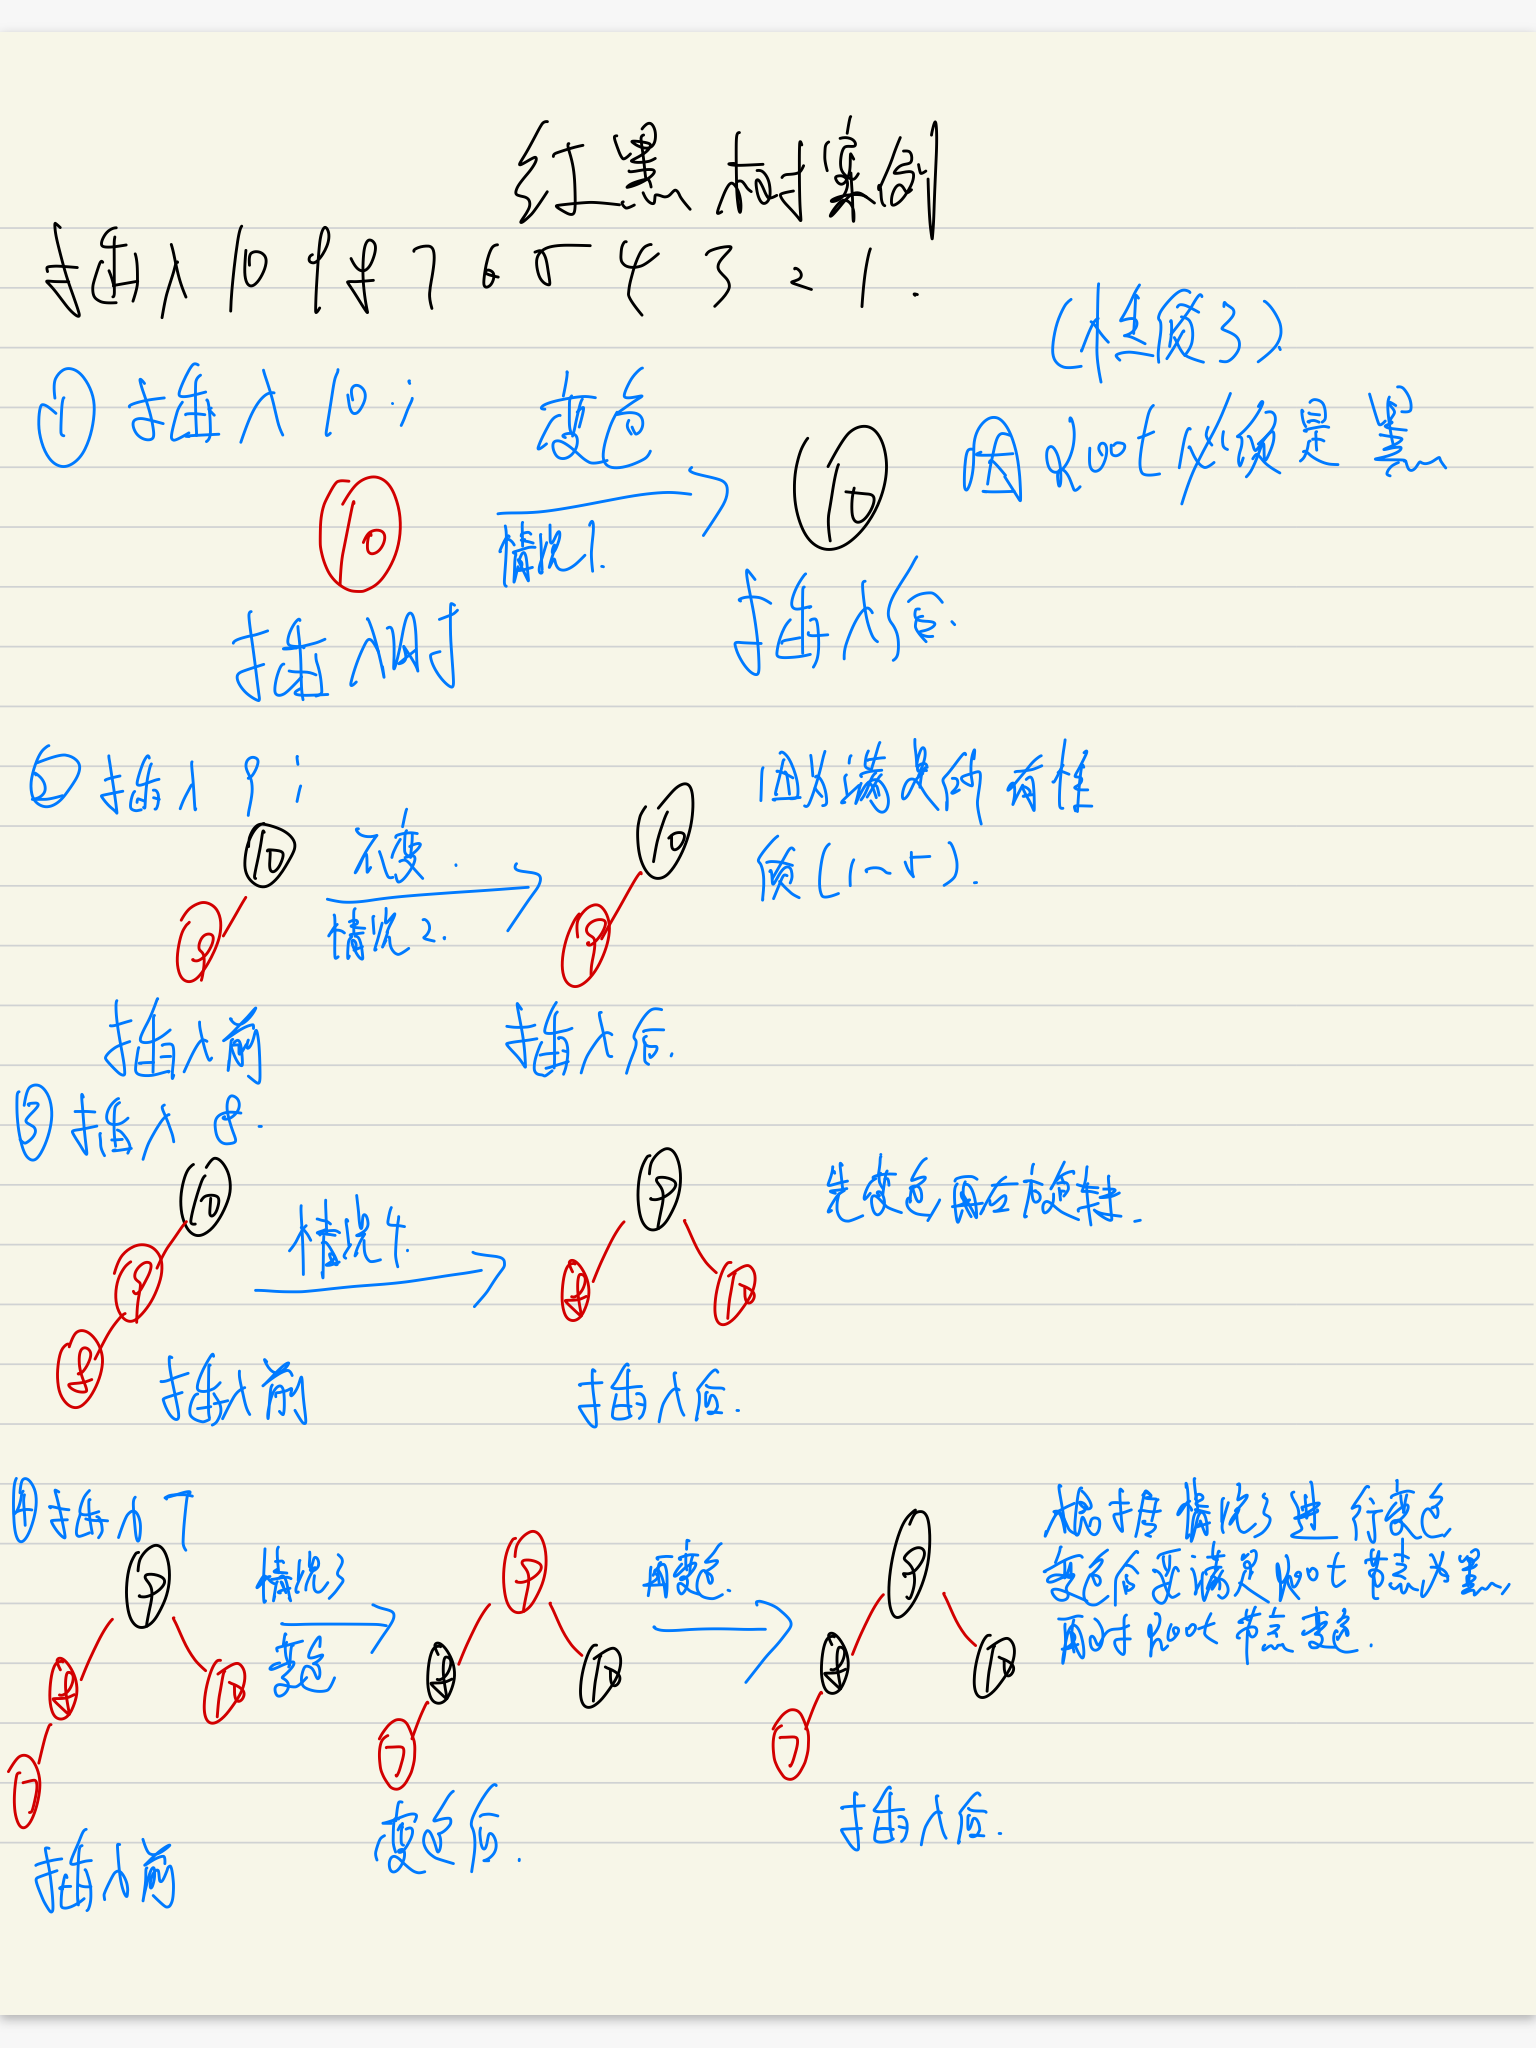 红黑树案例
插入 10 9 8 7 6 5 4 3 2 1.
(性质3)
① 插入 10; 变色 因 Root 必须是黑
10 情况1. 10
插入时 插入后.
② 插入 9; 因为满足所有性
10 不变. 10 质(1~5).
9 情况2. 9
插入前 插入后.
③ 插入 8.
10 情况4. 9 先变色再右旋转.
9 8 10
8 插入前 插入后.
④ 插入 7 根据情况3进行变色
9 情况3 9 再变色. 9 变色后要满足Root节点为黑,
变色 再对Root节点变色.
8 10 8 10 8 10
7 7 7
插入前 变色后. 插入后.